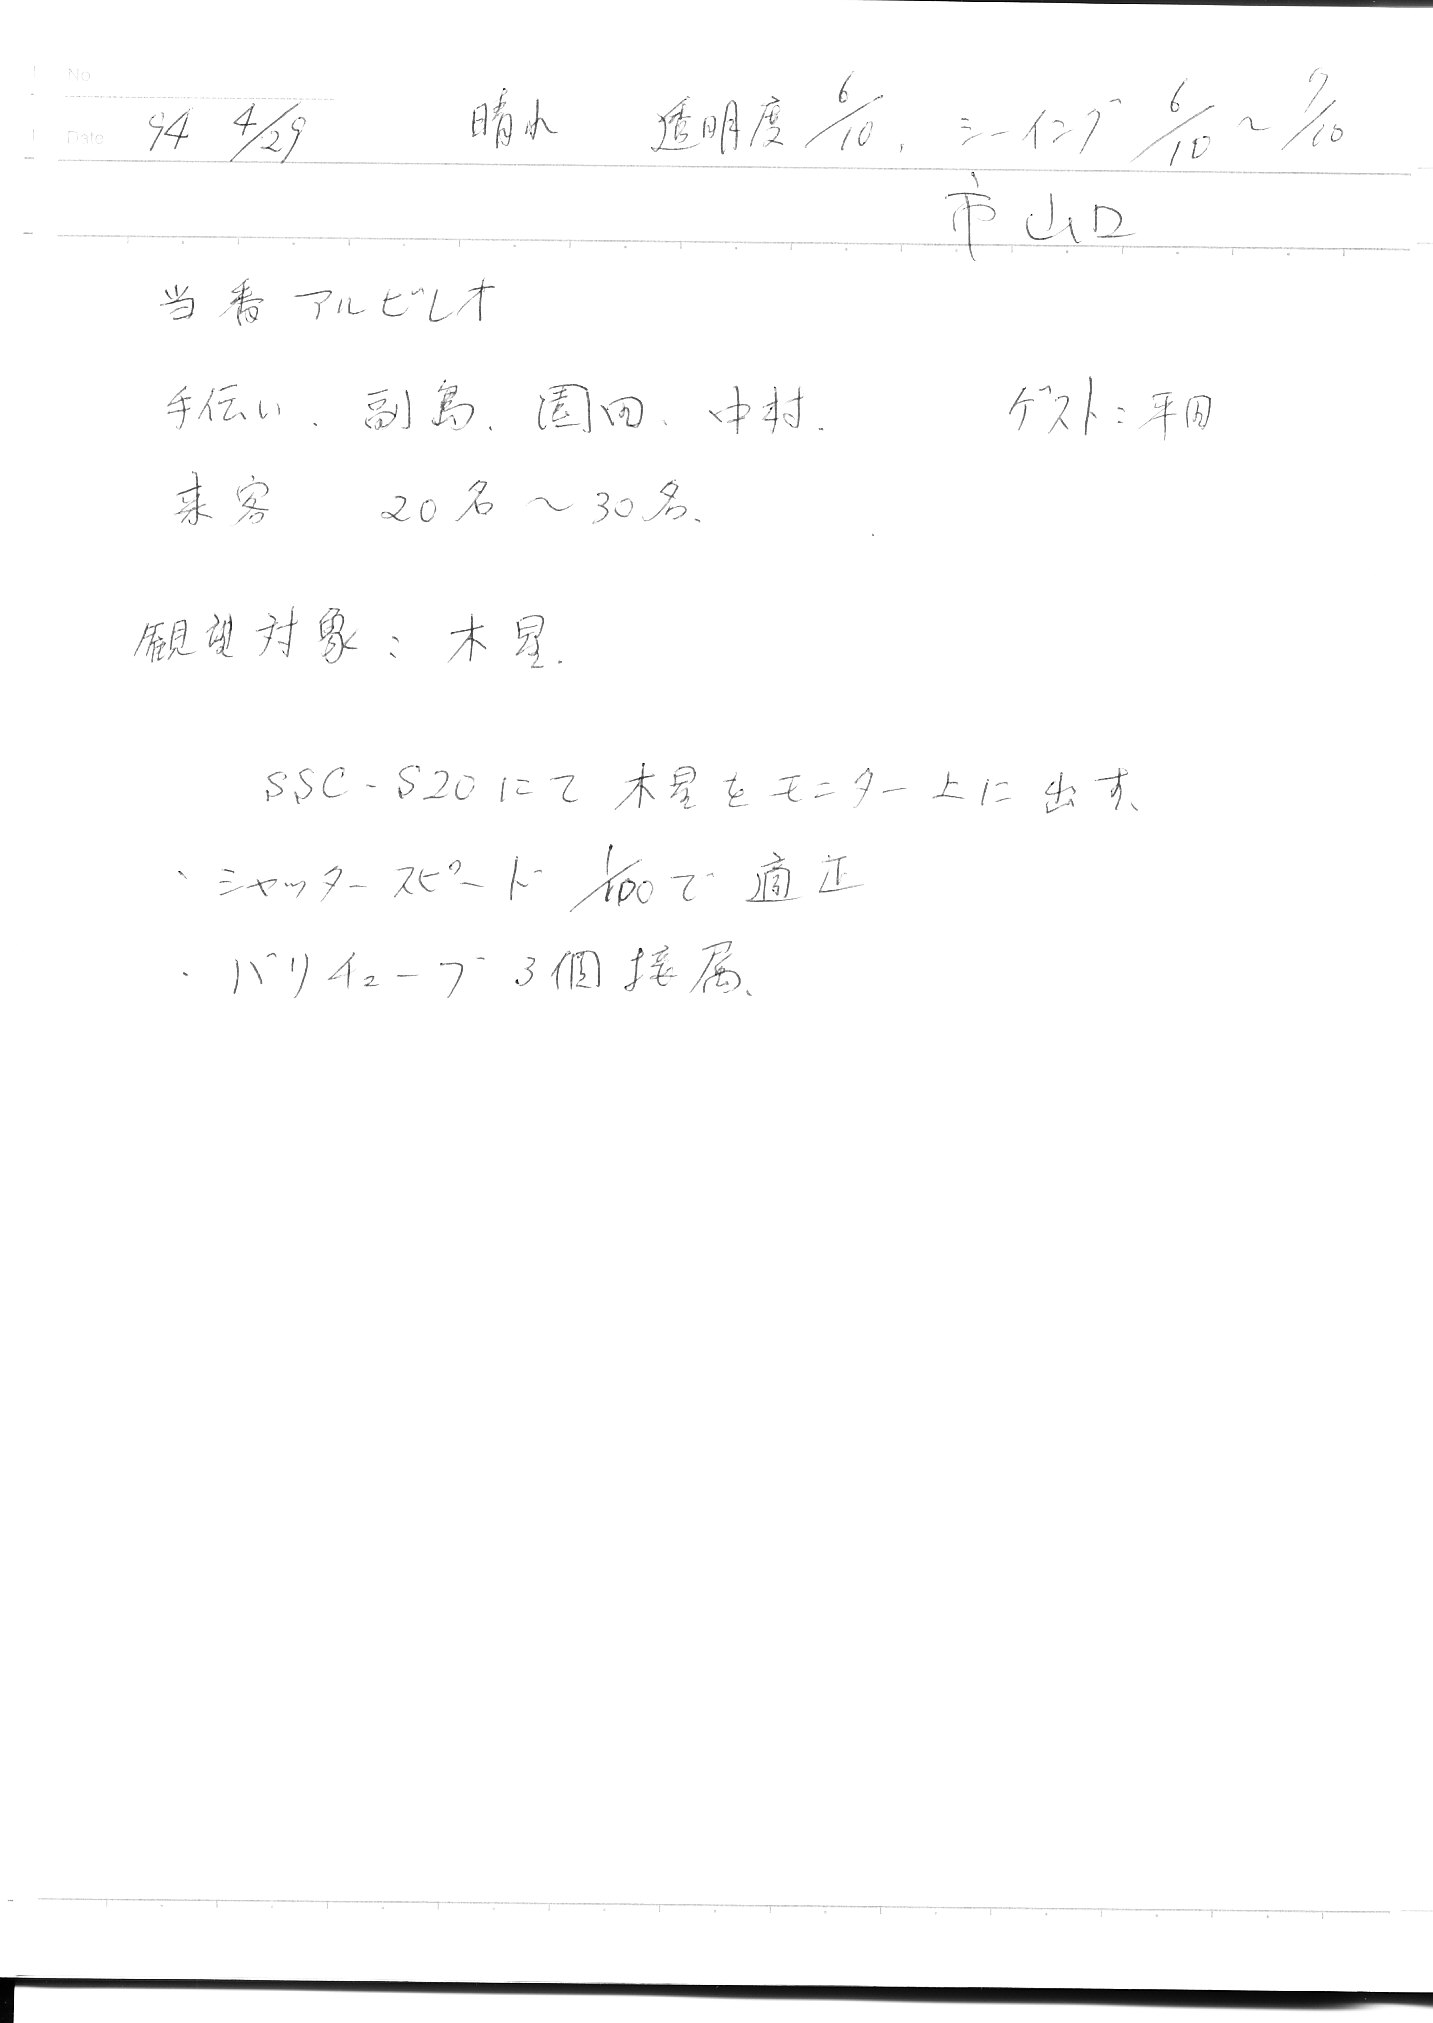 No
Date 94 4/29 晴れ 透明度 6/10、シーイング 6/10~7/10
市 山口
当番 アルビレオ
手伝い、副島、園田、中村. ゲスト:平田
来客 20名~30名、
観望対象:木星.
SSC-S20にて木星をモニター上に出す、
・シャッタースピード 1/100で適正
・バリチューブ3個接属、